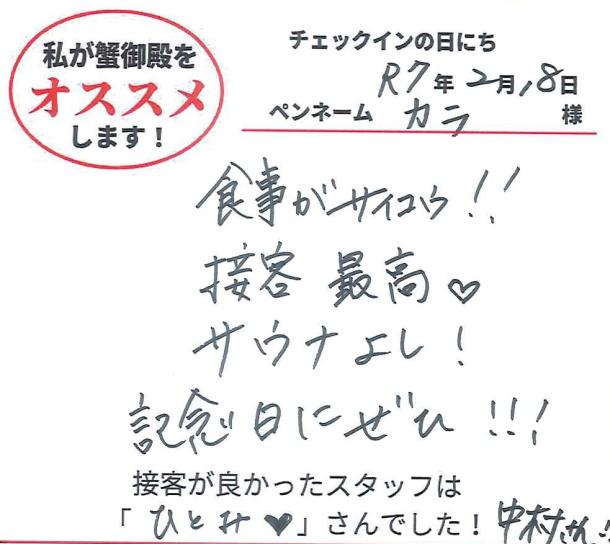 私が蟹御殿を
オススメ
します！
チェックインの日にち
R7年2月18日
ペンネーム カラ 様
食事がサイコウ!!
接客 最高♡
サウナよし!
記念日にぜひ!!!
接客が良かったスタッフは
「ひとみ♥」さんでした！中村さん!!